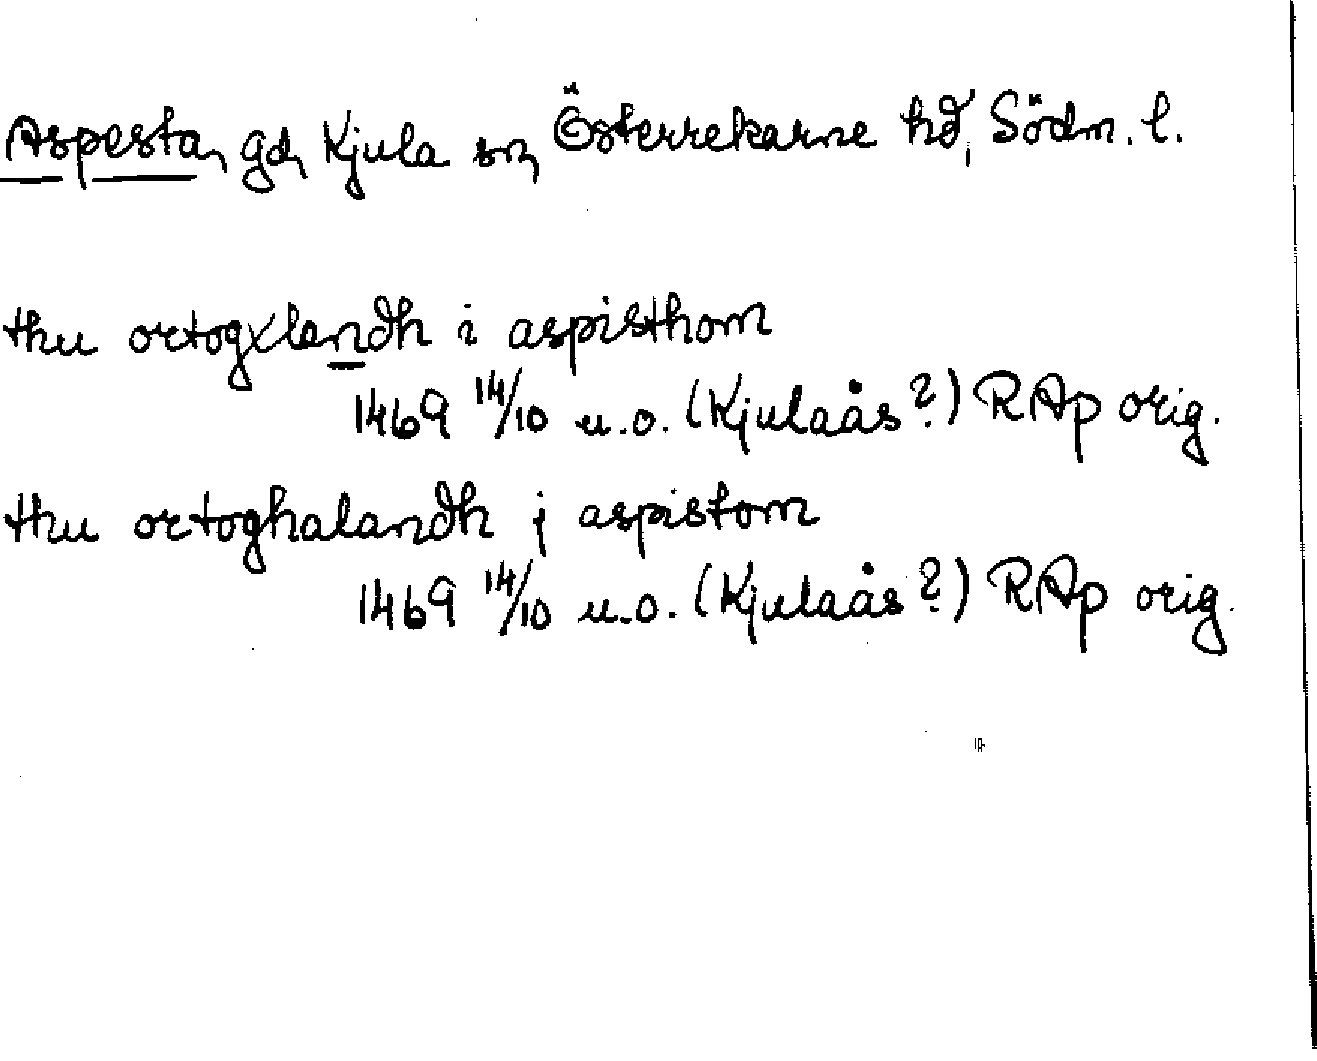 Aspesta, gd, Kjula sn, Österrekarne hd, Södm. l.
thu ortogxlandh i aspisthom
1469 14/10 u.o. (Kjulaås?) RAp orig.
thu ortoghalandh j aspistom
1469 14/10 u.o. (Kjulaås?) RAp orig.